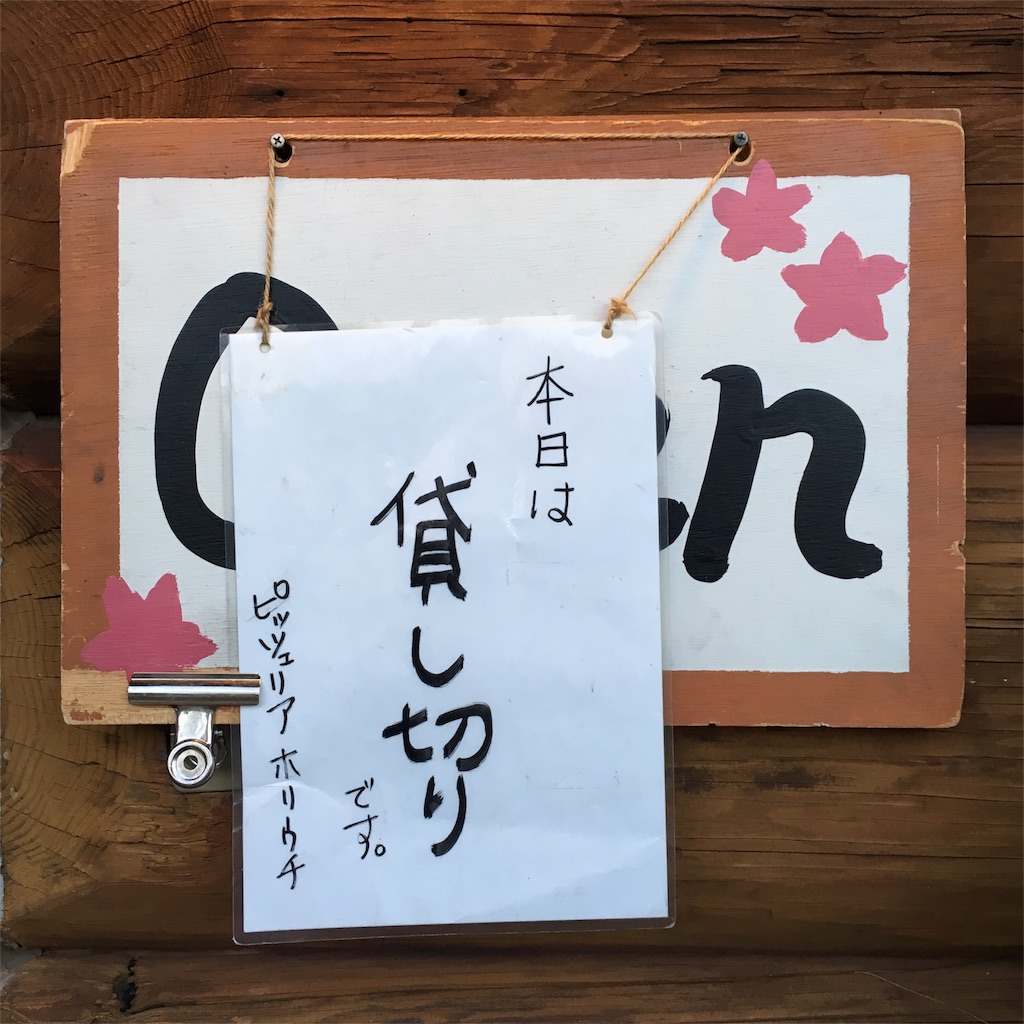 Open
本日は
貸し切り
です。
ピッツェリア ホリウチ